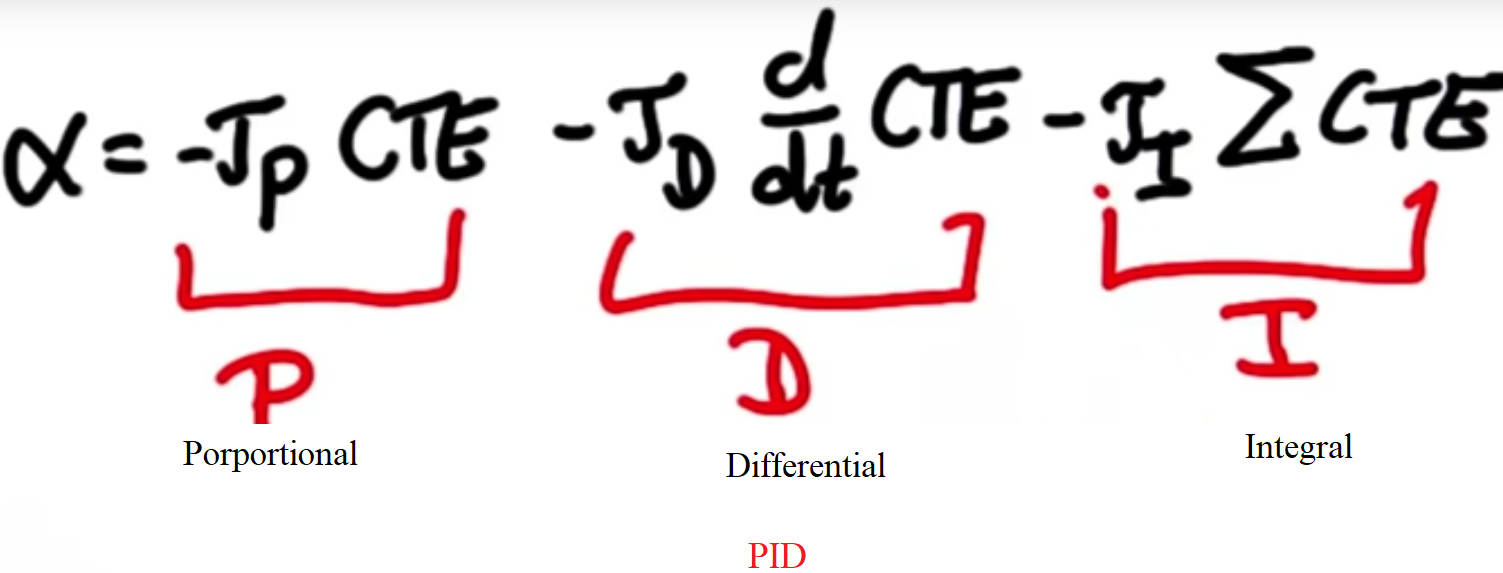 α = -J_P CTE - J_D d/dt CTE - J_I Σ CTE
P D I
Porportional Differential Integral
PID